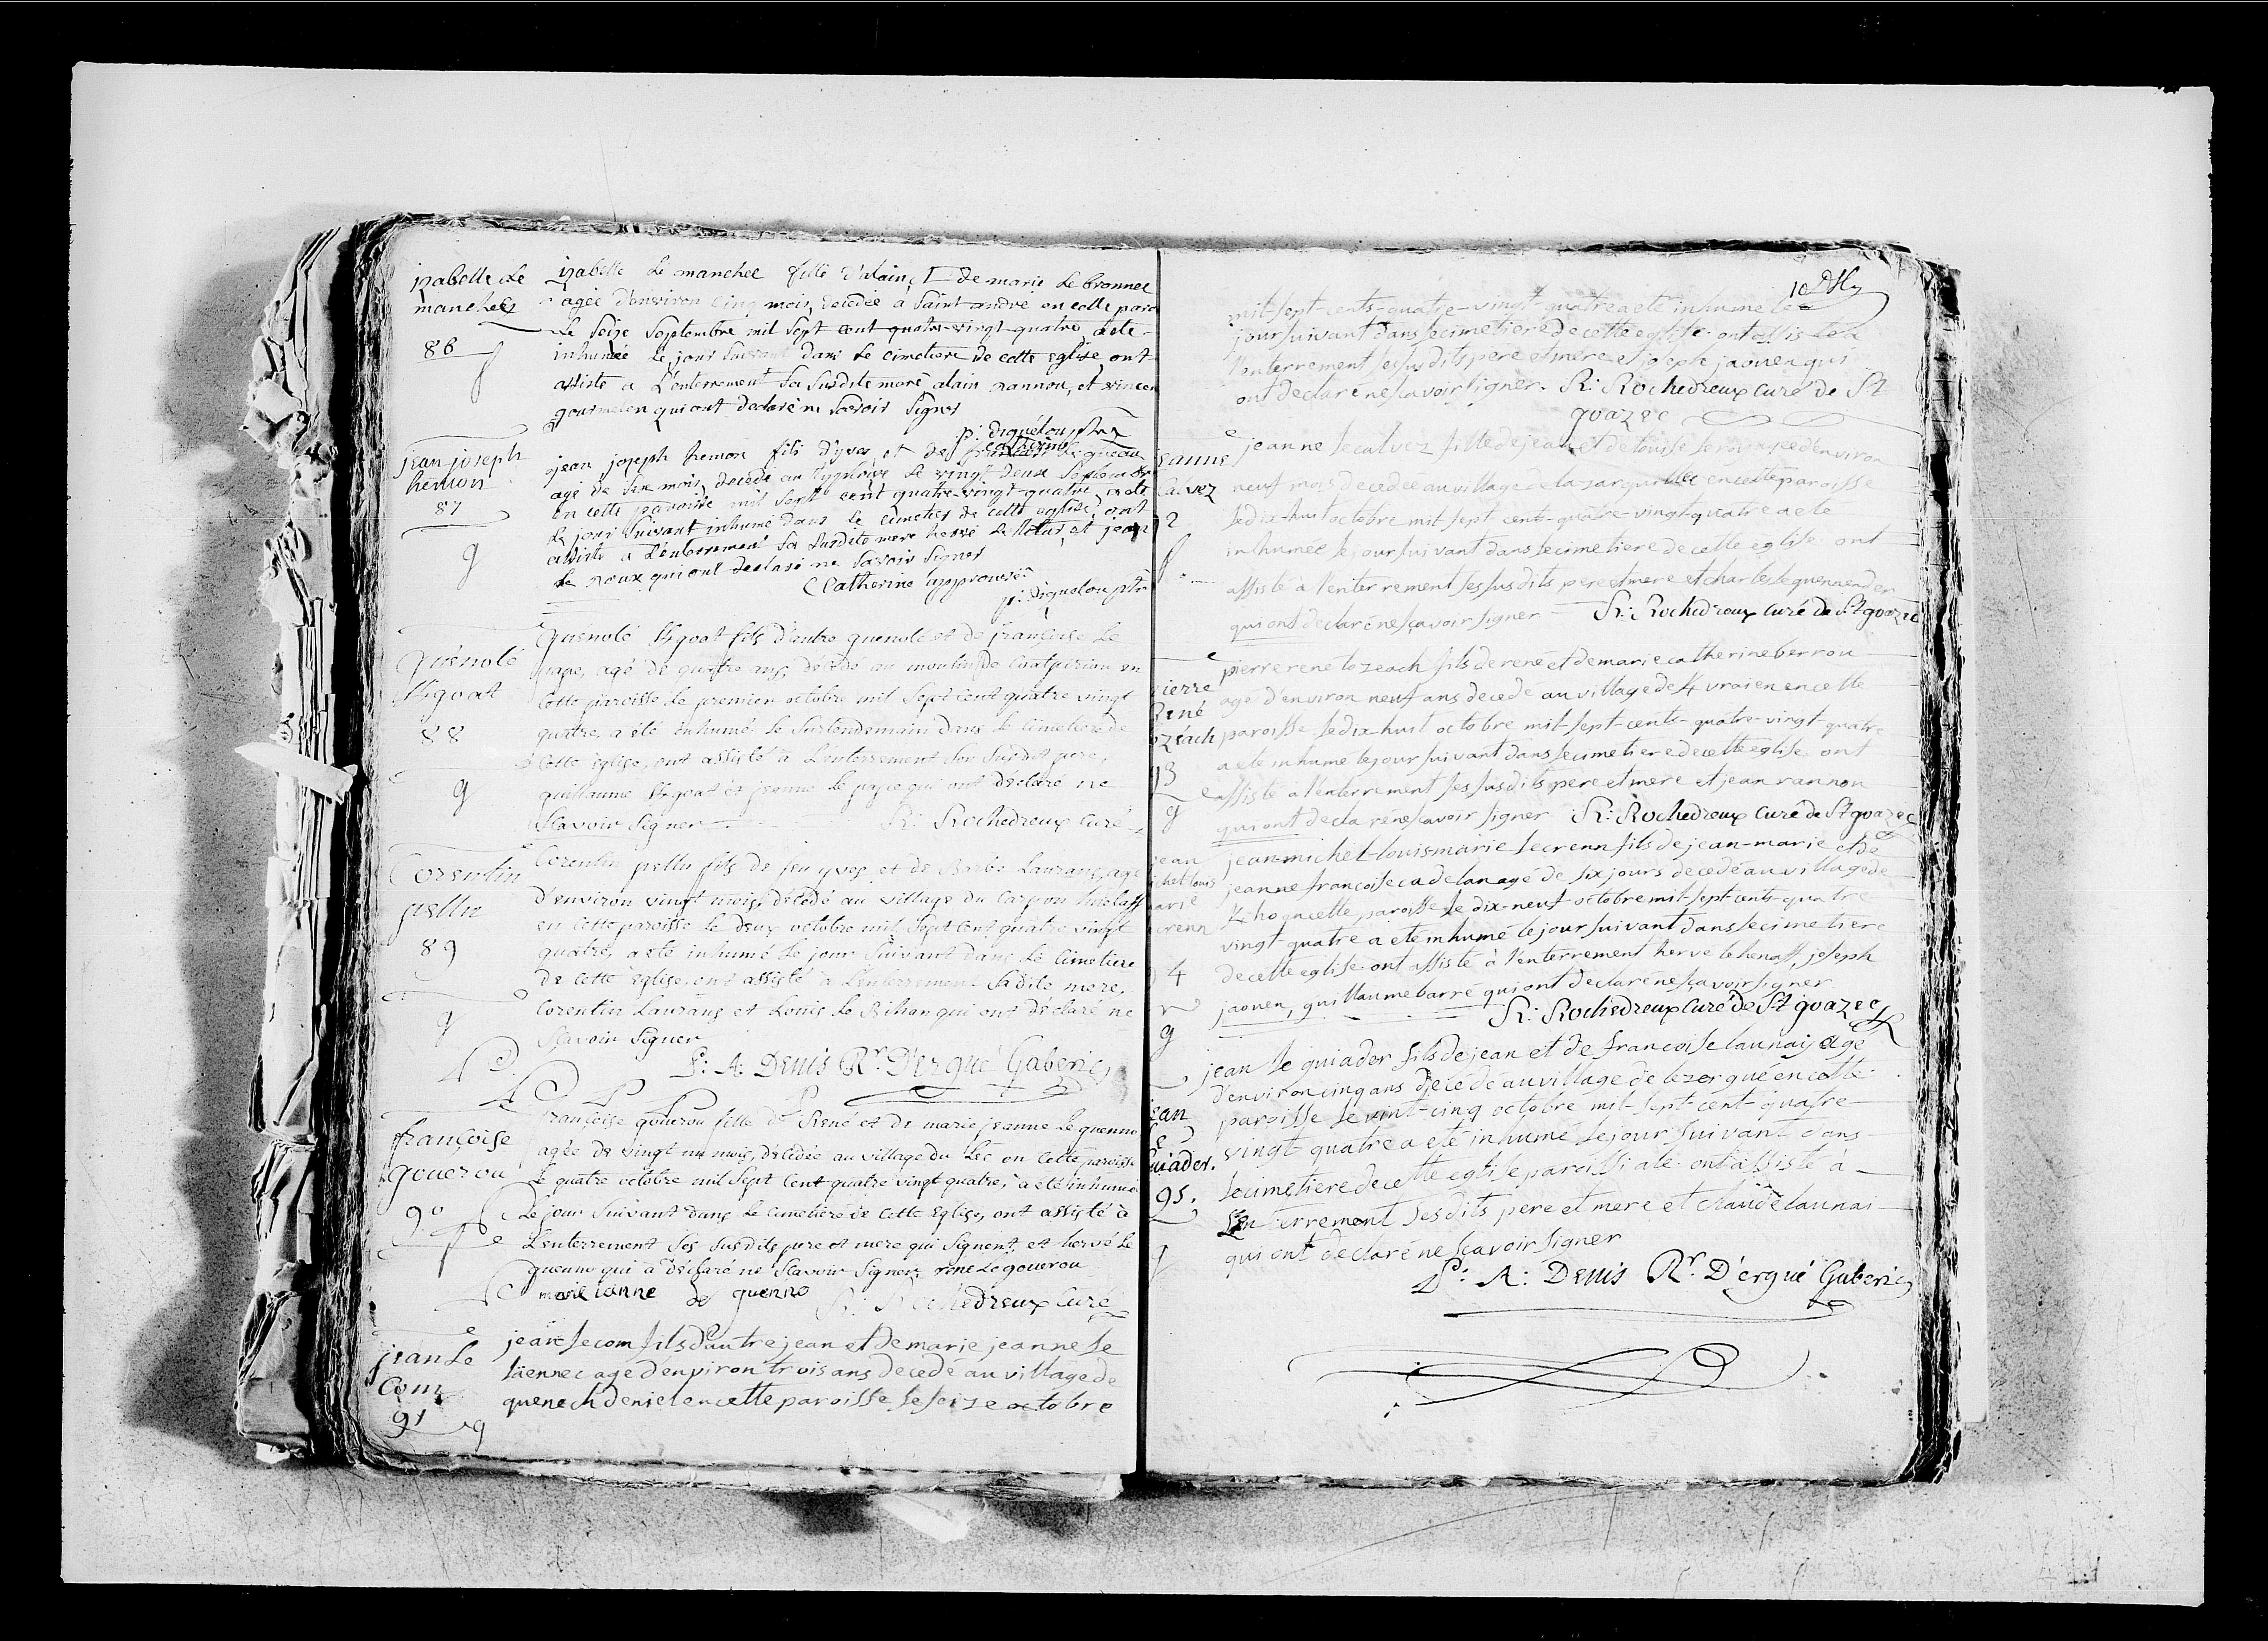 izabelle Le
manchec
86
f
izabelle Le manchec fille d'alain, et de marie Le bronnec
agée d'environ cinq mois, décédée a Saint andré en cette paro
Le seize Septembre mil Sept cent quatre-vingt-quatre a ete
inhumée Le jour Suivant dans Le cimetiere de cette Eglise ont
assisté a L'enterrement Sa Susdite mere, alain nannou, et vincen
gourmelen qui ont declaré ne Scavoir Signer
jean joseph
hemon
87
g
jean joseph hemon fils d'yves, et de catherine
agé de Six mois, decedé au Le vingt deux Septembre
en cette paroisse mil Sept cent quatre-vingt-quatre, a ete
Le jour Suivant inhumé dans Le cimetiere de cette eglise, ont
assisté a L'enterrement Sa Susdite mere hervé et jean
Le roux qui ont declaré ne Savoir Signer
Catherine approuvée
Guenolé
88
g
Guenolé fils d'autre guenolé et de françoise Le
pape, agé de quatre ans, décédé au moulin de Coatpiriou en
Cette paroisse le premier octobre mil Sept cent quatre vingt
quatre, a été inhumé le Surlendemain dans le Cimetiere de
Cette Eglise, ont assisté à L'enterrement Son Susdit pere,
guillaume et jeanne Le pape qui ont déclaré ne
Scavoir Signer R: Rochedreux Curé
Corentin
89
g
Corentin fils de feu yves et de Barbe Laurans, agé
d'environ vingt mois, décédé au village du
en Cette paroisse le deux octobre mil Sept Cent quatre vingt
quatre, a été inhumé le jour Suivant dans Le Cimetiere
de Cette Eglise, ont assisté a L'enterrement Sadite mere,
Corentin Laurans et Louis Le Bihan qui ont déclaré ne
Scavoir Signer
A: Denis Rr. D'ergué Gaberic,
françoise
gouerou
90
françoise gouerou fille de René et de marie jeanne Le quenno
agée de vingt un mois, décédée au village du Lec en Cette paroisse
Le quatre octobre mil Sept Cent quatre vingt quatre, a été inhumée
Le jour Suivant dans Le Cimetiere de Cette Eglise, ont assisté à
L'enterrement Ses Susdits pere et mere qui Signent, et hervé Le
quenno qui a déclaré ne Scavoir Signer, rene Le gouerou
marie ianne Le quenno R: Rochedreux Curé
jean Le
Com
91 g
jean le com fils d'autre jean et de marie jeanne le
laennec agé d'environ trois ans decedé au village de
quenech deniel en cette paroisse le seize octobre
mil-sept-cents-quatre-vingt quatre a eté inhumé le
jour suivant dans le cimetiere de cette eglise ont assisté a
l'enterrement ses susdits pere et mere et joseph jaouen qui
ont declaré ne scavoir signer. R: Rochedreux Curé de St
goazec
eanne
Calvez
2
f
jeanne le calvez fille de jean et de louise le roy agée d'environ
neuf mois decedée au village de en cette paroisse
le dix-huit octobre mil sept cents-quatre-vingt quatre a eté
inhumée le jour suivant dans le cimetiere de cette eglise ont
assisté à l'enterrement ses susdits pere et mere et charles
qui ont declaré ne sçavoir signer R: Rochedreux Curé de St goazec
ierre
René
ozéach
93
g
pierre rené lozeach fils de rené et de marie catherine berrou
agé d'environ neuf ans decedé au village de en cette
paroisse le dix-huit octobre mil-sept-cents-quatre-vingt quatre
a eté inhumé le jour suivant dans le cimetiere de cette eglise ont
assisté a l'enterrement ses susdits pere et mere et jean nannou
qui ont declaré ne scavoir signer R: Rochedreux Curé de St goazec
jean
ichel louis
arie
crenn
4
g
jean-michel-louis marie le crenn fils de jean-marie et de
jeanne francoise cadelan agé de six jours decedé au village de
en cette paroisse le dix-neuf octobre mil-sept cents-quatre
vingt quatre a eté inhumé le jour suivant dans le cimetiere
de cette eglise ont assisté à l'enterrement hervé le henaff, joseph
jaouen, guillaume barré qui ont declaré ne sçavoir signer
R: Rochedreux Curé de St goazec
ean
Le
uiader.
95.
g
jean le guiader fils de jean et de francoise launai agé
d'environ cinq ans decedé au village de lezergué en cette
paroisse le vint-cinq octobre mil-sept-cent-quatre
vingt quatre a eté inhumé le jour suivant dans
le cimetiere de cette eglise paroissiale ont assisté à
l'enterrement ses dits pere et mere et claude launai
qui ont declaré ne sçavoir signer
A: Denis Rr. D'ergué Gaberic,